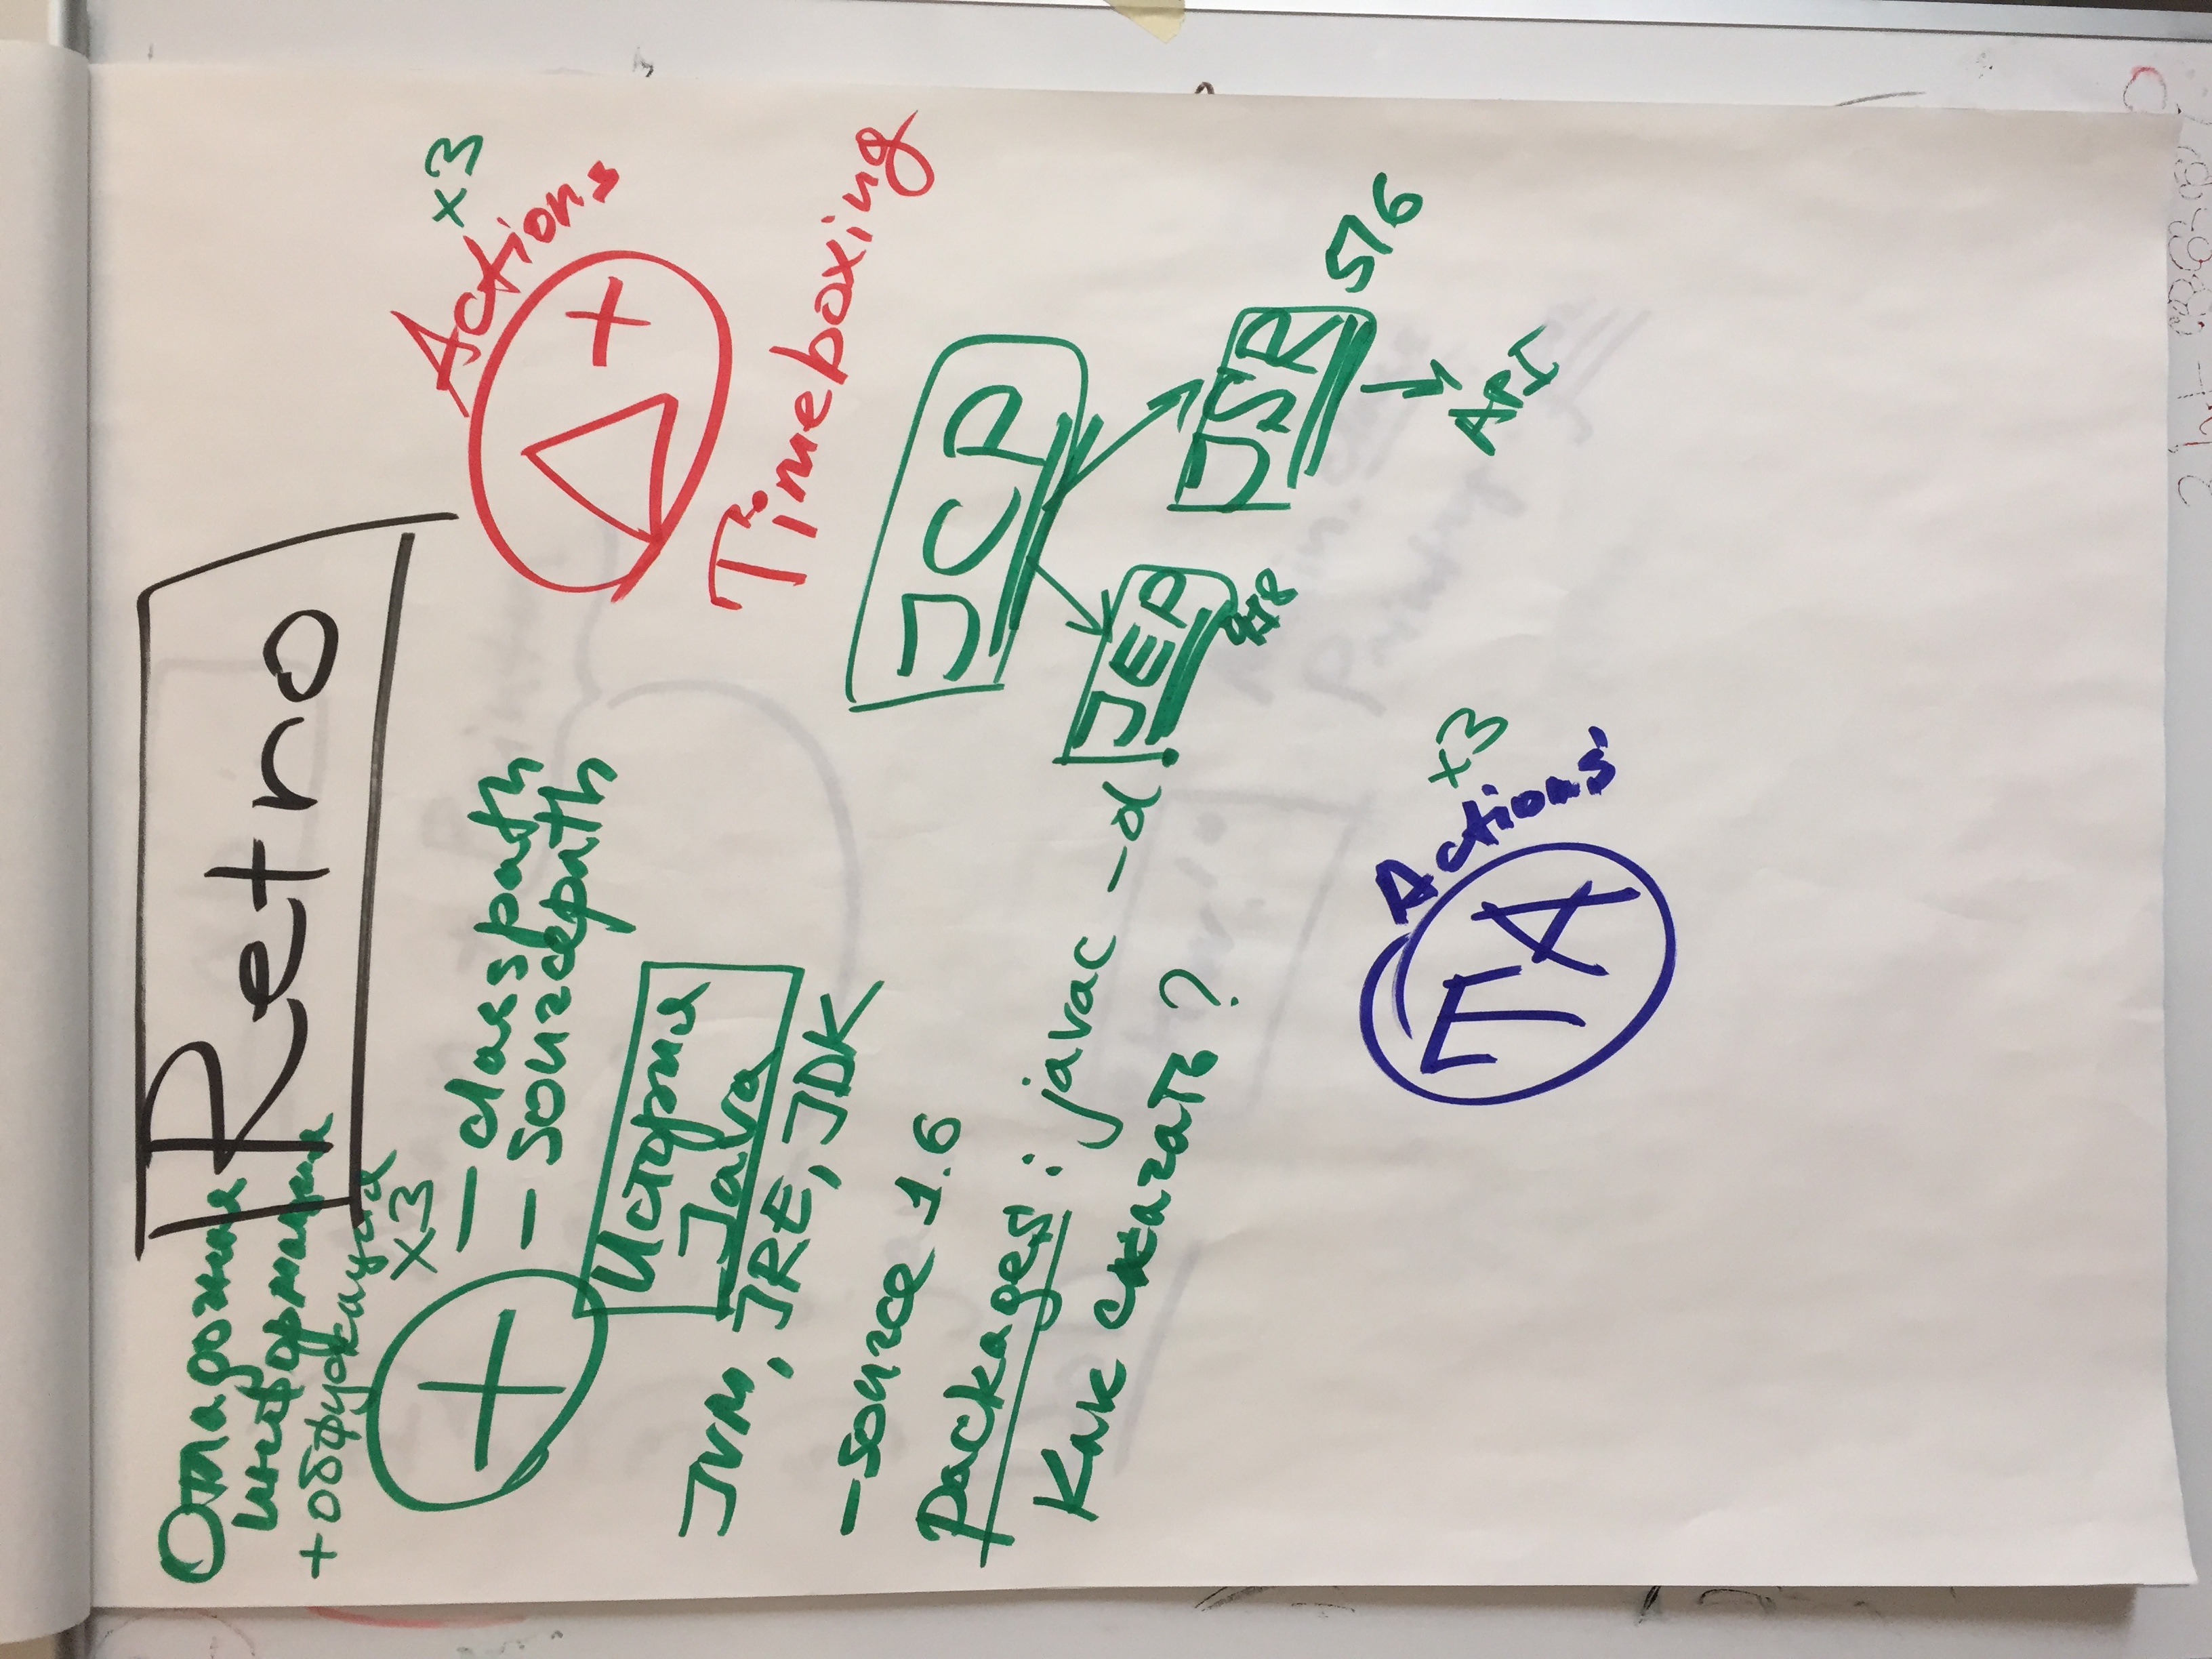 Retro
Отладочная
информация
+ обфускация
+
x3
- classpath
- sourcepath
История
Java
JVM, JRE, JDK
-source 1.6
Packages: javac -d .
Как сказать?
Actions
x3
Δ +
Timeboxing
JCP
JEP
JSR
516
API
TA
Actions
x3